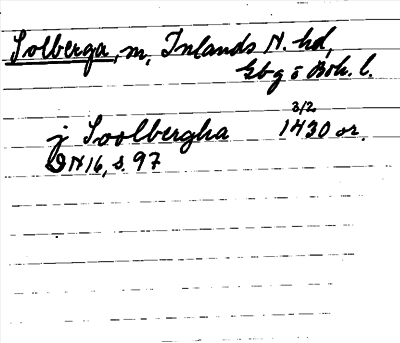 Solberga, m, Inlands N. hd,
Gbg o Boh. l.
3/2
j Soolbergha 1430 or.
DN 16, s. 97